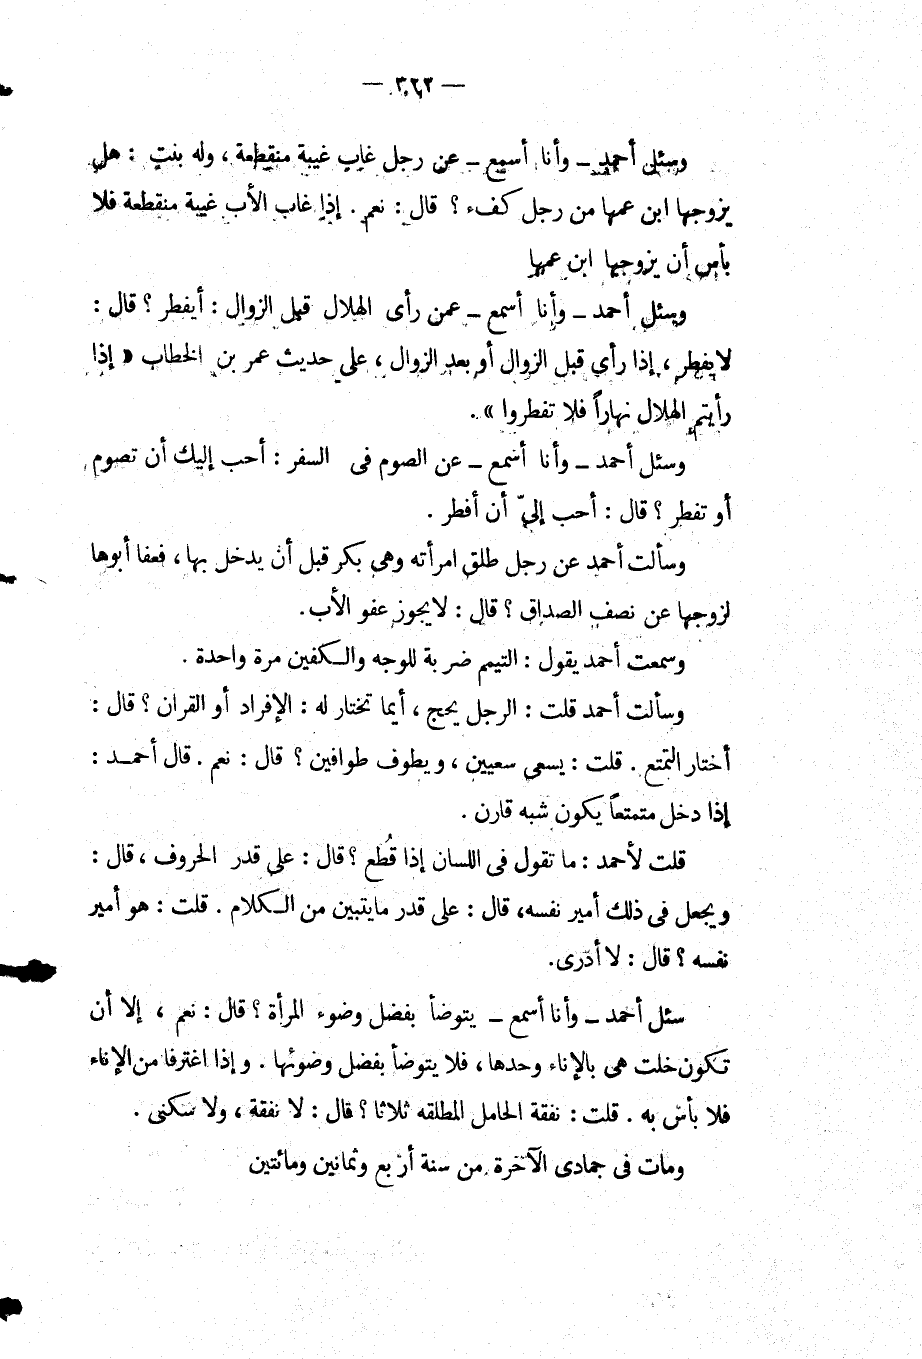 — ٣٢٣ —
وسئل أحمد – وأنا أسمع – عن رجل غاب غيبة منقطعة ، وله بنت : هل
يزوجها ابن عمها من رجل كفء ؟ قال : نعم . إذا غاب الأب غيبة منقطعة فلا
بأس أن يزوجها ابن عمها
وسئل أحمد – وأنا أسمع – عمن رأى الهلال قبل الزوال : أيفطر ؟ قال :
لا يفطر ، إذا رأي قبل الزوال أو بعد الزوال ، على حديث عمر بن الخطاب « إذا
رأيتم الهلال نهاراً فلا تفطروا » .
وسئل أحمد – وأنا أسمع – عن الصوم فى السفر : أحب إليك أن تصوم
أو تفطر ؟ قال : أحب إليّ أن أفطر .
وسألت أحمد عن رجل طلق امرأته وهى بكر قبل أن يدخل بها ، فعفا أبوها
لزوجها عن نصف الصداق ؟ قال : لا يجوز عفو الأب .
وسمعت أحمد يقول : التيمم ضربة للوجه والكفين مرة واحدة .
وسألت أحمد قلت : الرجل يحج ، أيما تختار له : الإفراد أو القران ؟ قال :
أختار التمتع . قلت : يسعى سعيين ، ويطوف طوافين ؟ قال : نعم . قال أحمــد :
إذا دخل متمتعاً يكون شبه قارن .
قلت لأحمد : ما تقول فى اللسان إذا قُطع ؟ قال : على قدر الحروف ، قال :
ويجعل فى ذلك أمير نفسه، قال : على قدر مايتبين من الكلام . قلت : هو أمير
نفسه ؟ قال : لا أدرى .
سئل أحمد – وأنا أسمع – يتوضأ بفضل وضوء المرأة ؟ قال : نعم ، إلا أن
تكون خلت هى بالإناء وحدها ، فلا يتوضأ بفضل وضوئها . وإذا اغترفا من الإناء
فلا بأس به . قلت : نفقة الحامل المطلقه ثلاثا ؟ قال : لا نفقة ، ولا سكنى .
ومات فى جمادى الآخرة من سنة أربع وثمانين ومائتين